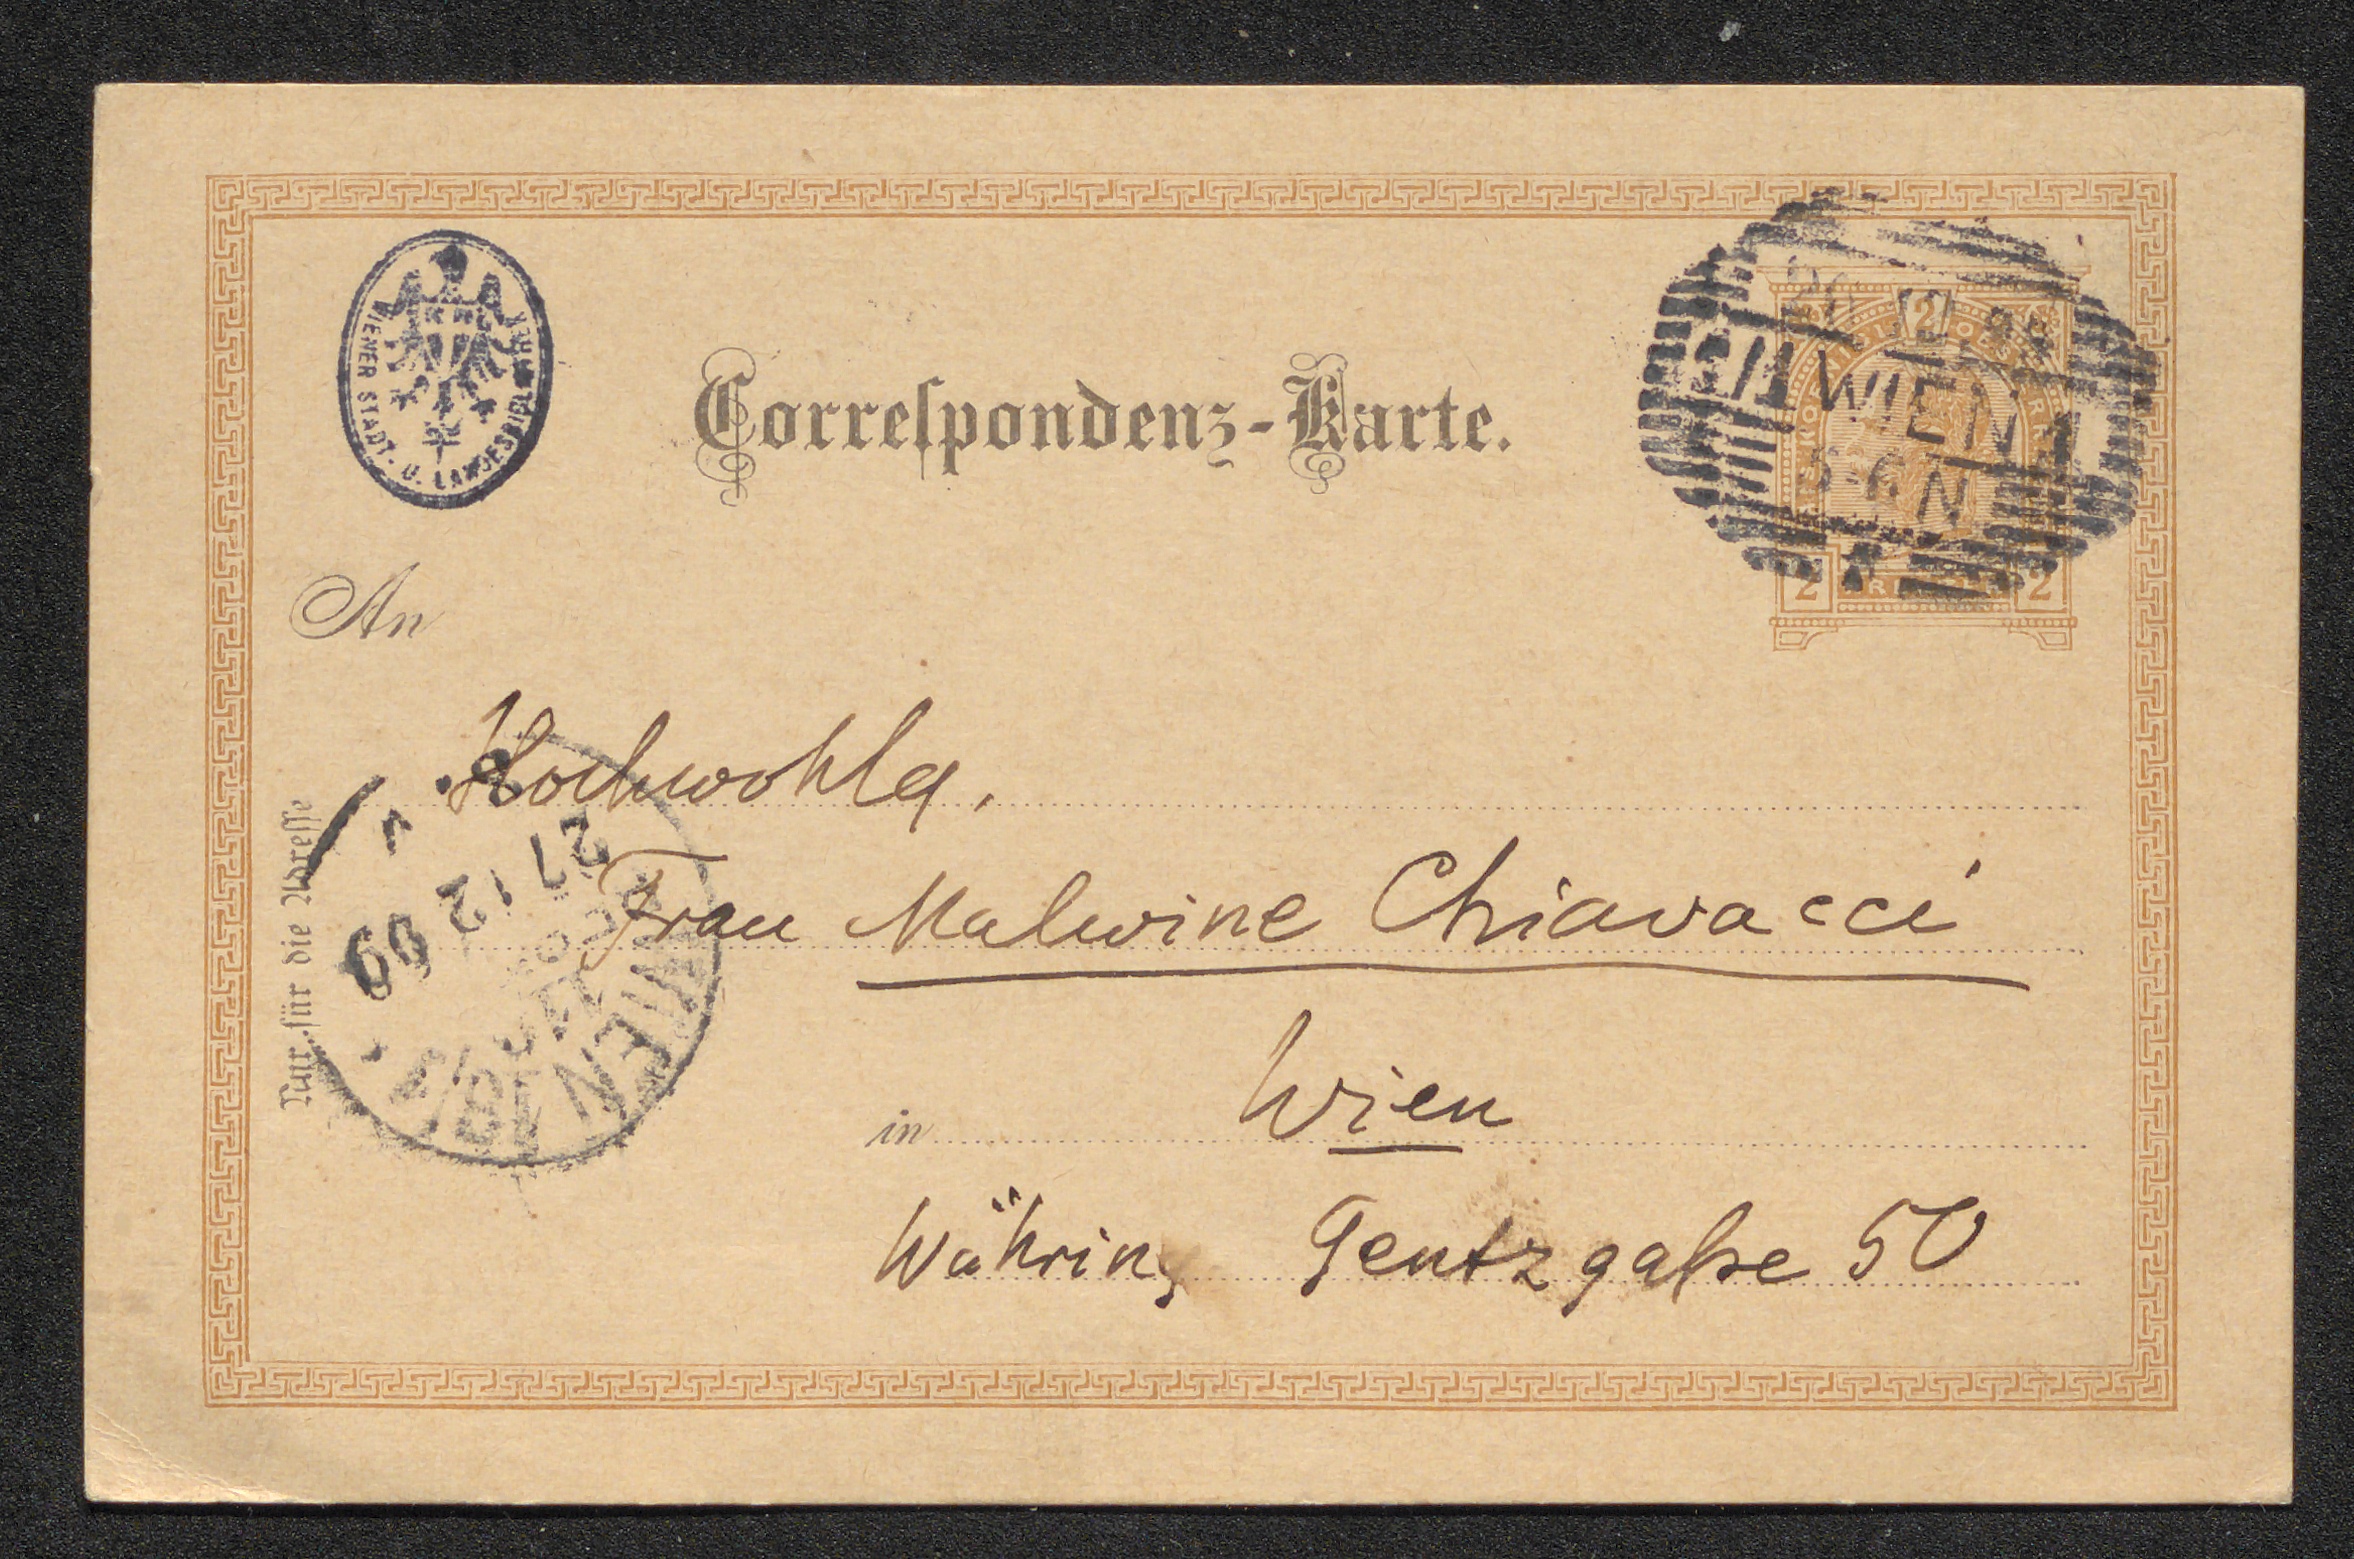 WIENER STADT- U. LANDESBIBLIOTHEK
Correſpondenz-Karte.
2
1/1 WIEN 1
5-6 N
2 2
An
Hochwohlg.
Frau Malwine Chiavacci
in Wien
Währing Gentzgaſse 50
Nur für die Adreſſe
WIEN 18/1
27 12 99